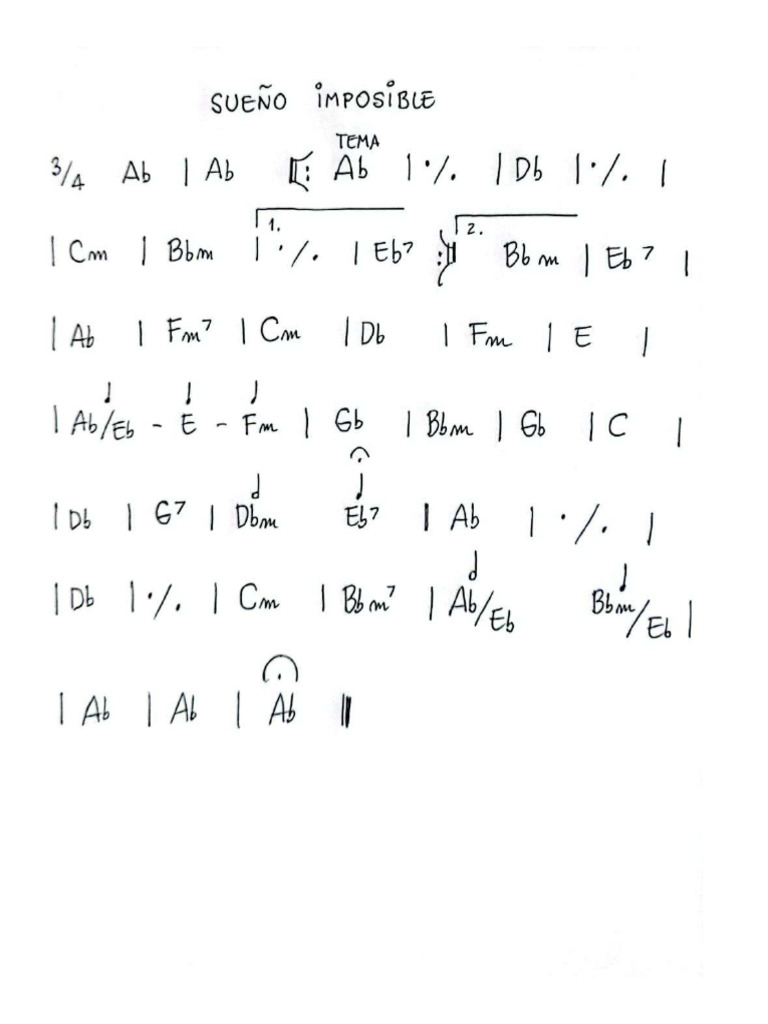 SUEÑO IMPOSIBLE
TEMA
3/4 Ab | Ab 𝄆 Ab | ٪ | Db | ٪ |
1. 2.
| Cm | Bbm | ٪ | Eb7 𝄇 Bbm | Eb7 |
| Ab | Fm7 | Cm | Db | Fm | E |
| Ab/Eb - E - Fm | Gb | Bbm | Gb | C |
| Db | G7 | Dbm Eb7 | Ab | ٪ |
| Db | ٪ | Cm | Bbm7 | Ab/Eb Bbm/Eb |
| Ab | Ab | Ab ||